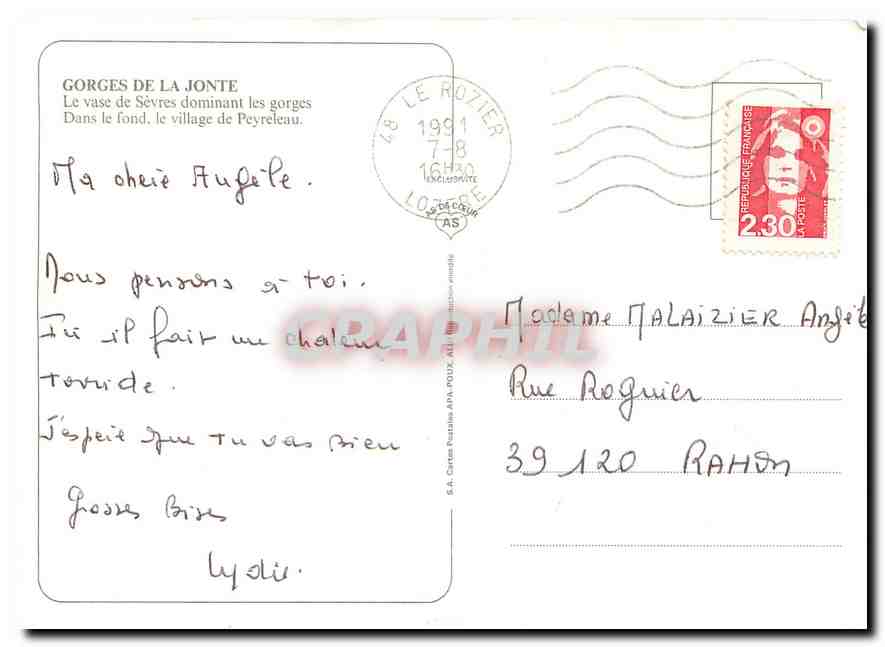 GORGES DE LA JONTE
Le vase de Sèvres dominant les gorges
Dans le fond, le village de Peyreleau.
Ma cherie Angèle.
Nous pensons à toi.
Ici il fait une chaleur
torride.
J'espère que tu vas bien
Grosses Bises
Lydie.
48 LE ROZIER
1991
7-8
16H30
LOZERE
AS DE CŒUR
AS
S.A. Cartes Postales APA-POUX, ALBI Reproduction interdite
REPUBLIQUE FRANÇAISE
2,30
LA POSTE
Madame MALAIZIER Angèle
Rue Roguier
39120 RAHON
CPAPHIL